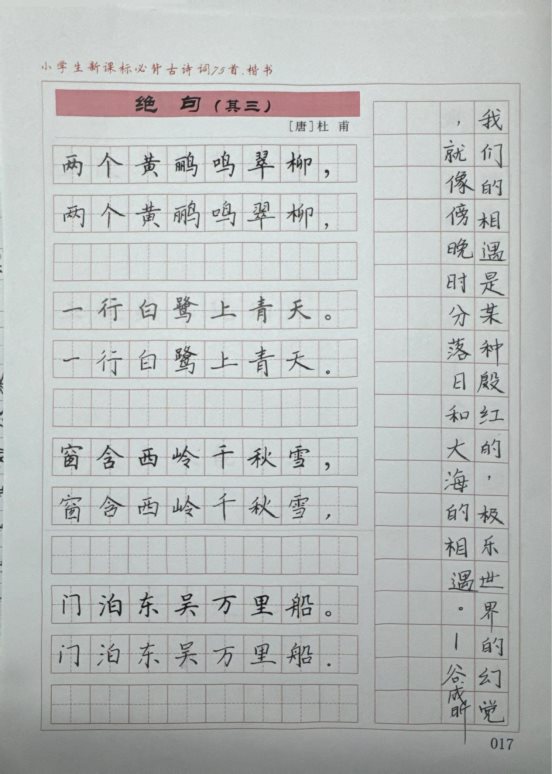 小学生新课标必背古诗词75首.楷书
绝句(其三)
[唐]杜甫
两个黄鹂鸣翠柳,
两个黄鹂鸣翠柳,
一行白鹭上青天。
一行白鹭上青天.
窗含西岭千秋雪,
窗含西岭千秋雪,
门泊东吴万里船。
门泊东吴万里船.
我们的相遇是某种殷红的,极乐世界的幻觉
,就像傍晚时分落日和大海的相遇。—谷成昕
017